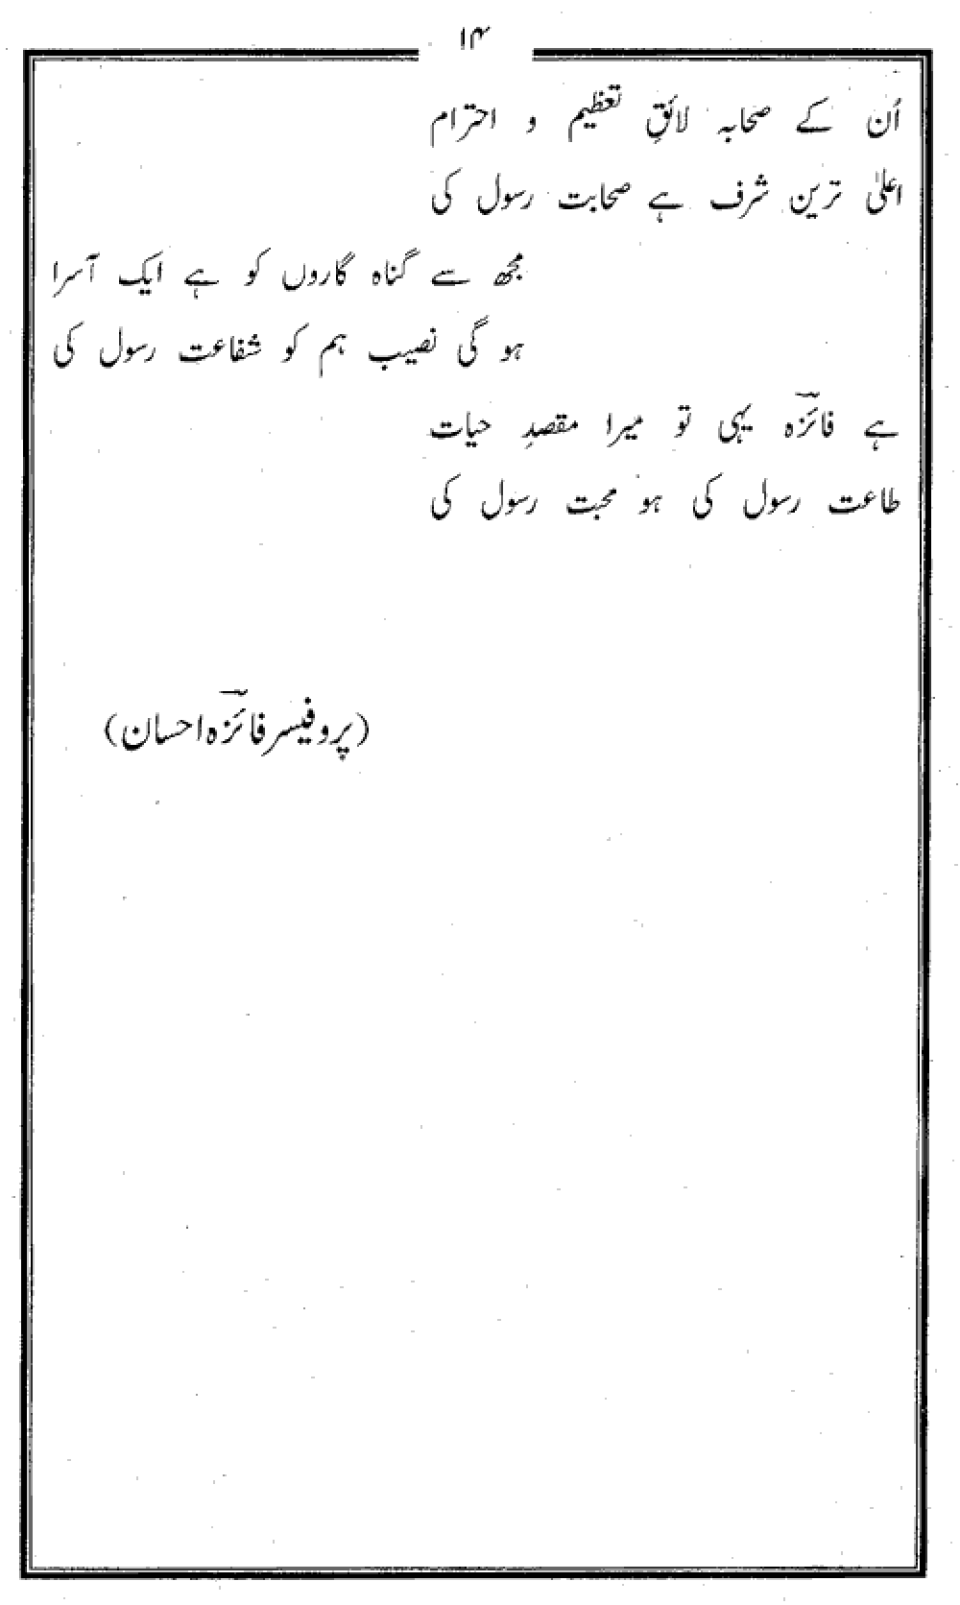 ۱۴
اُن کے صحابہ لائقِ تعظیم و احترام
اعلیٰ ترین شرف ہے صحابت رسول کی
مجھ سے گناہ گاروں کو ہے ایک آسرا
ہو گی نصیب ہم کو شفاعت رسول کی
ہے فائزہؔ یہی تو میرا مقصدِ حیات
طاعت رسول کی ہو محبت رسول کی
(پروفیسر فائزہؔ احسان)